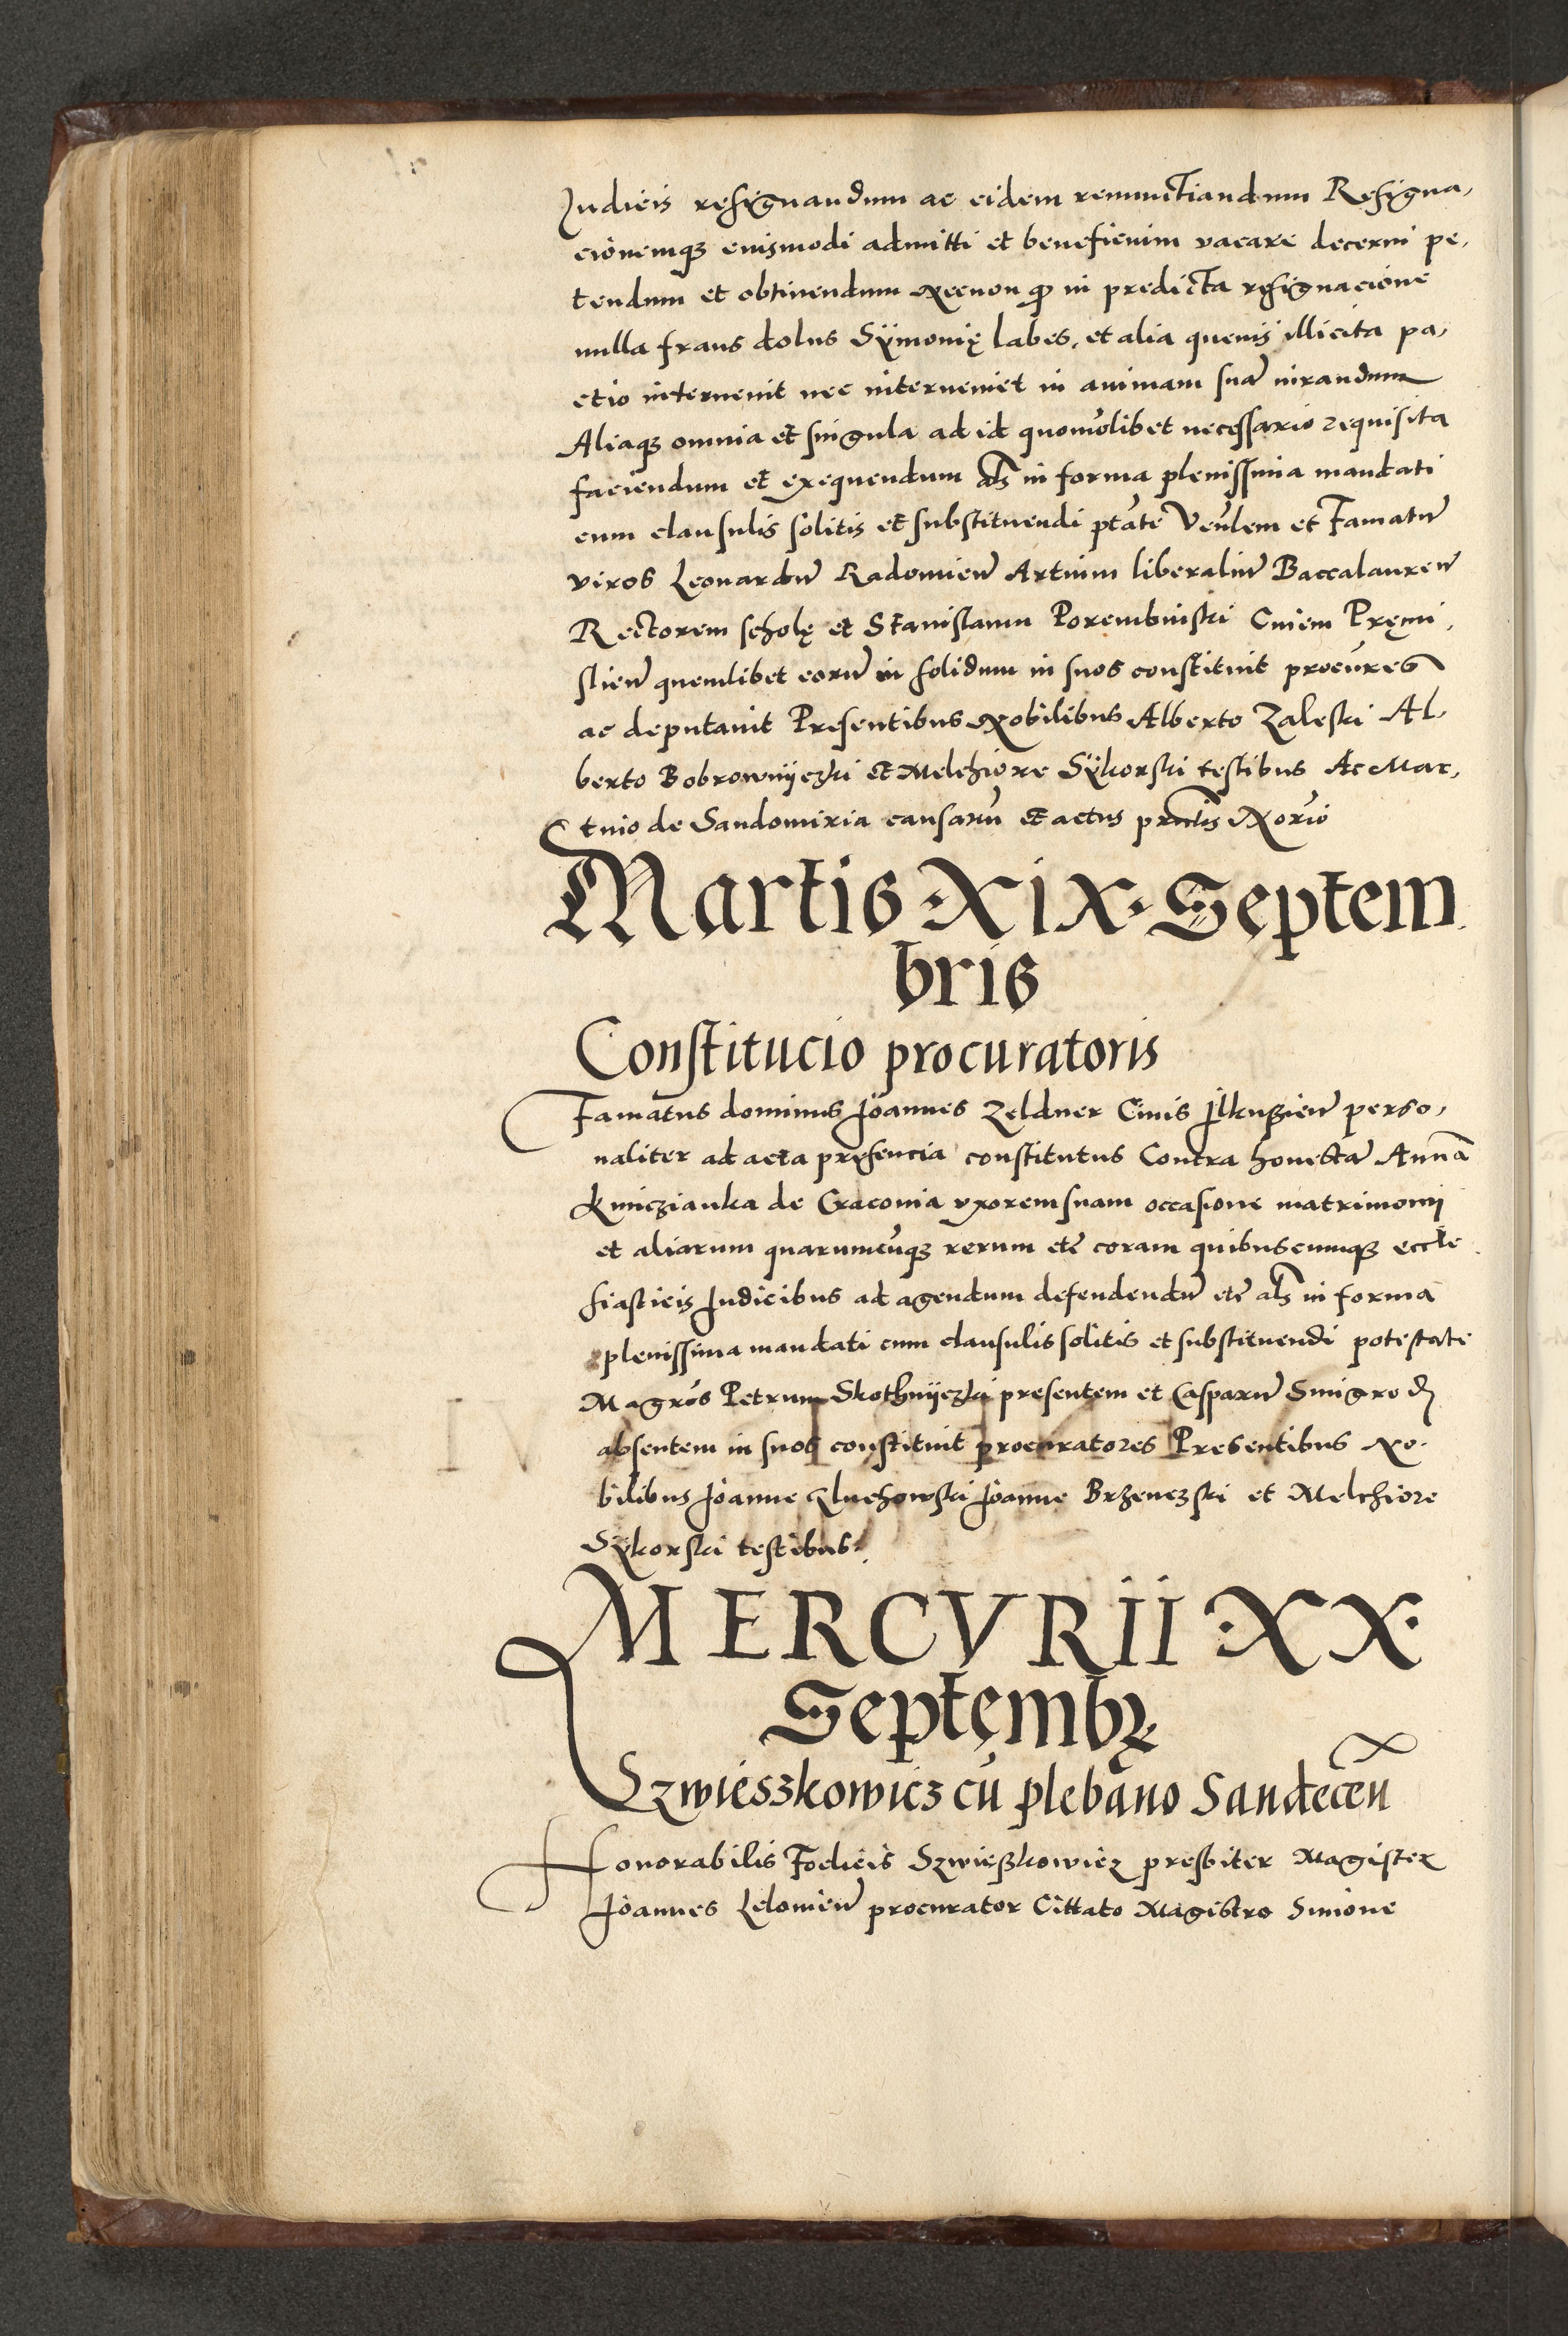 Iudicis resignandum ac eidem renunctiandum Resigna,
cionemqꝫ euismodi admitti et beneficium vacare decerni pe,
tendum et obtinendum Necnon ꝙ in predicta resignacione
nulla fraus dolus Sÿmonię labes, et alia queuis illicita pa,
ctio interuenit nec interueniet in animam suā iurandum
Aliaqꝫ omnia et singula ad id quomōlibet necessario requisita
faciendum et exequendum al̄s in forma plenissima mandati
cum clausulis solitis et substituendi ptāte Venlem et Famatū
viros Leonardū Radomień Artium liberaliū Baccalaureū
Rectorem scholę et Stanislaum Porembinski Ciuem Pręmi,
slień quemlibet eorū in solidum in suos constituit procūres
ac deputauit Presentibus Nobilibus Alberto Zaleski Al,
berto Bobrownÿczki et Melchiore Sÿkorski testibus Ac Mar,
tino de Sandomiria causarū et actus pr̄ntis Norīo
Martis · XIX · Septem
bris
Constitucio procuratoris
Famatus dominus Joannes Zeldner Ciuis Ilkuszień perso,
naliter ad acta pręsencia constitutus Contra honestā Annā
Kmiczianka de Cracouia vxorem suam occasione matrimonij
et aliarum quarumcūqꝫ rerum etc̄ coram quibuscumqꝫ eccle
siasticis Iudicibus ad agendum defendendū etc̄ al̄s in forma
plenissima mandati cum clausulis solitis et substituendi potestate
Magr̄os Petrum Skothnÿczki presentem et Casparū Smigrod
absentem in suos constituit procuratores Presentibus No,
bilibus Joanne Gluchowski Joanne Brzenczski et Melchiore
Sÿkorski testibus.
MERCVRII · XX ·
Septembꝫ
Szwieszkowicz cū plebano Sandeceń
Honorabilis Foelicis Szwieszkowicz presbiter Magister
Joannes Lelouień procurator Cittato Magistro Simone